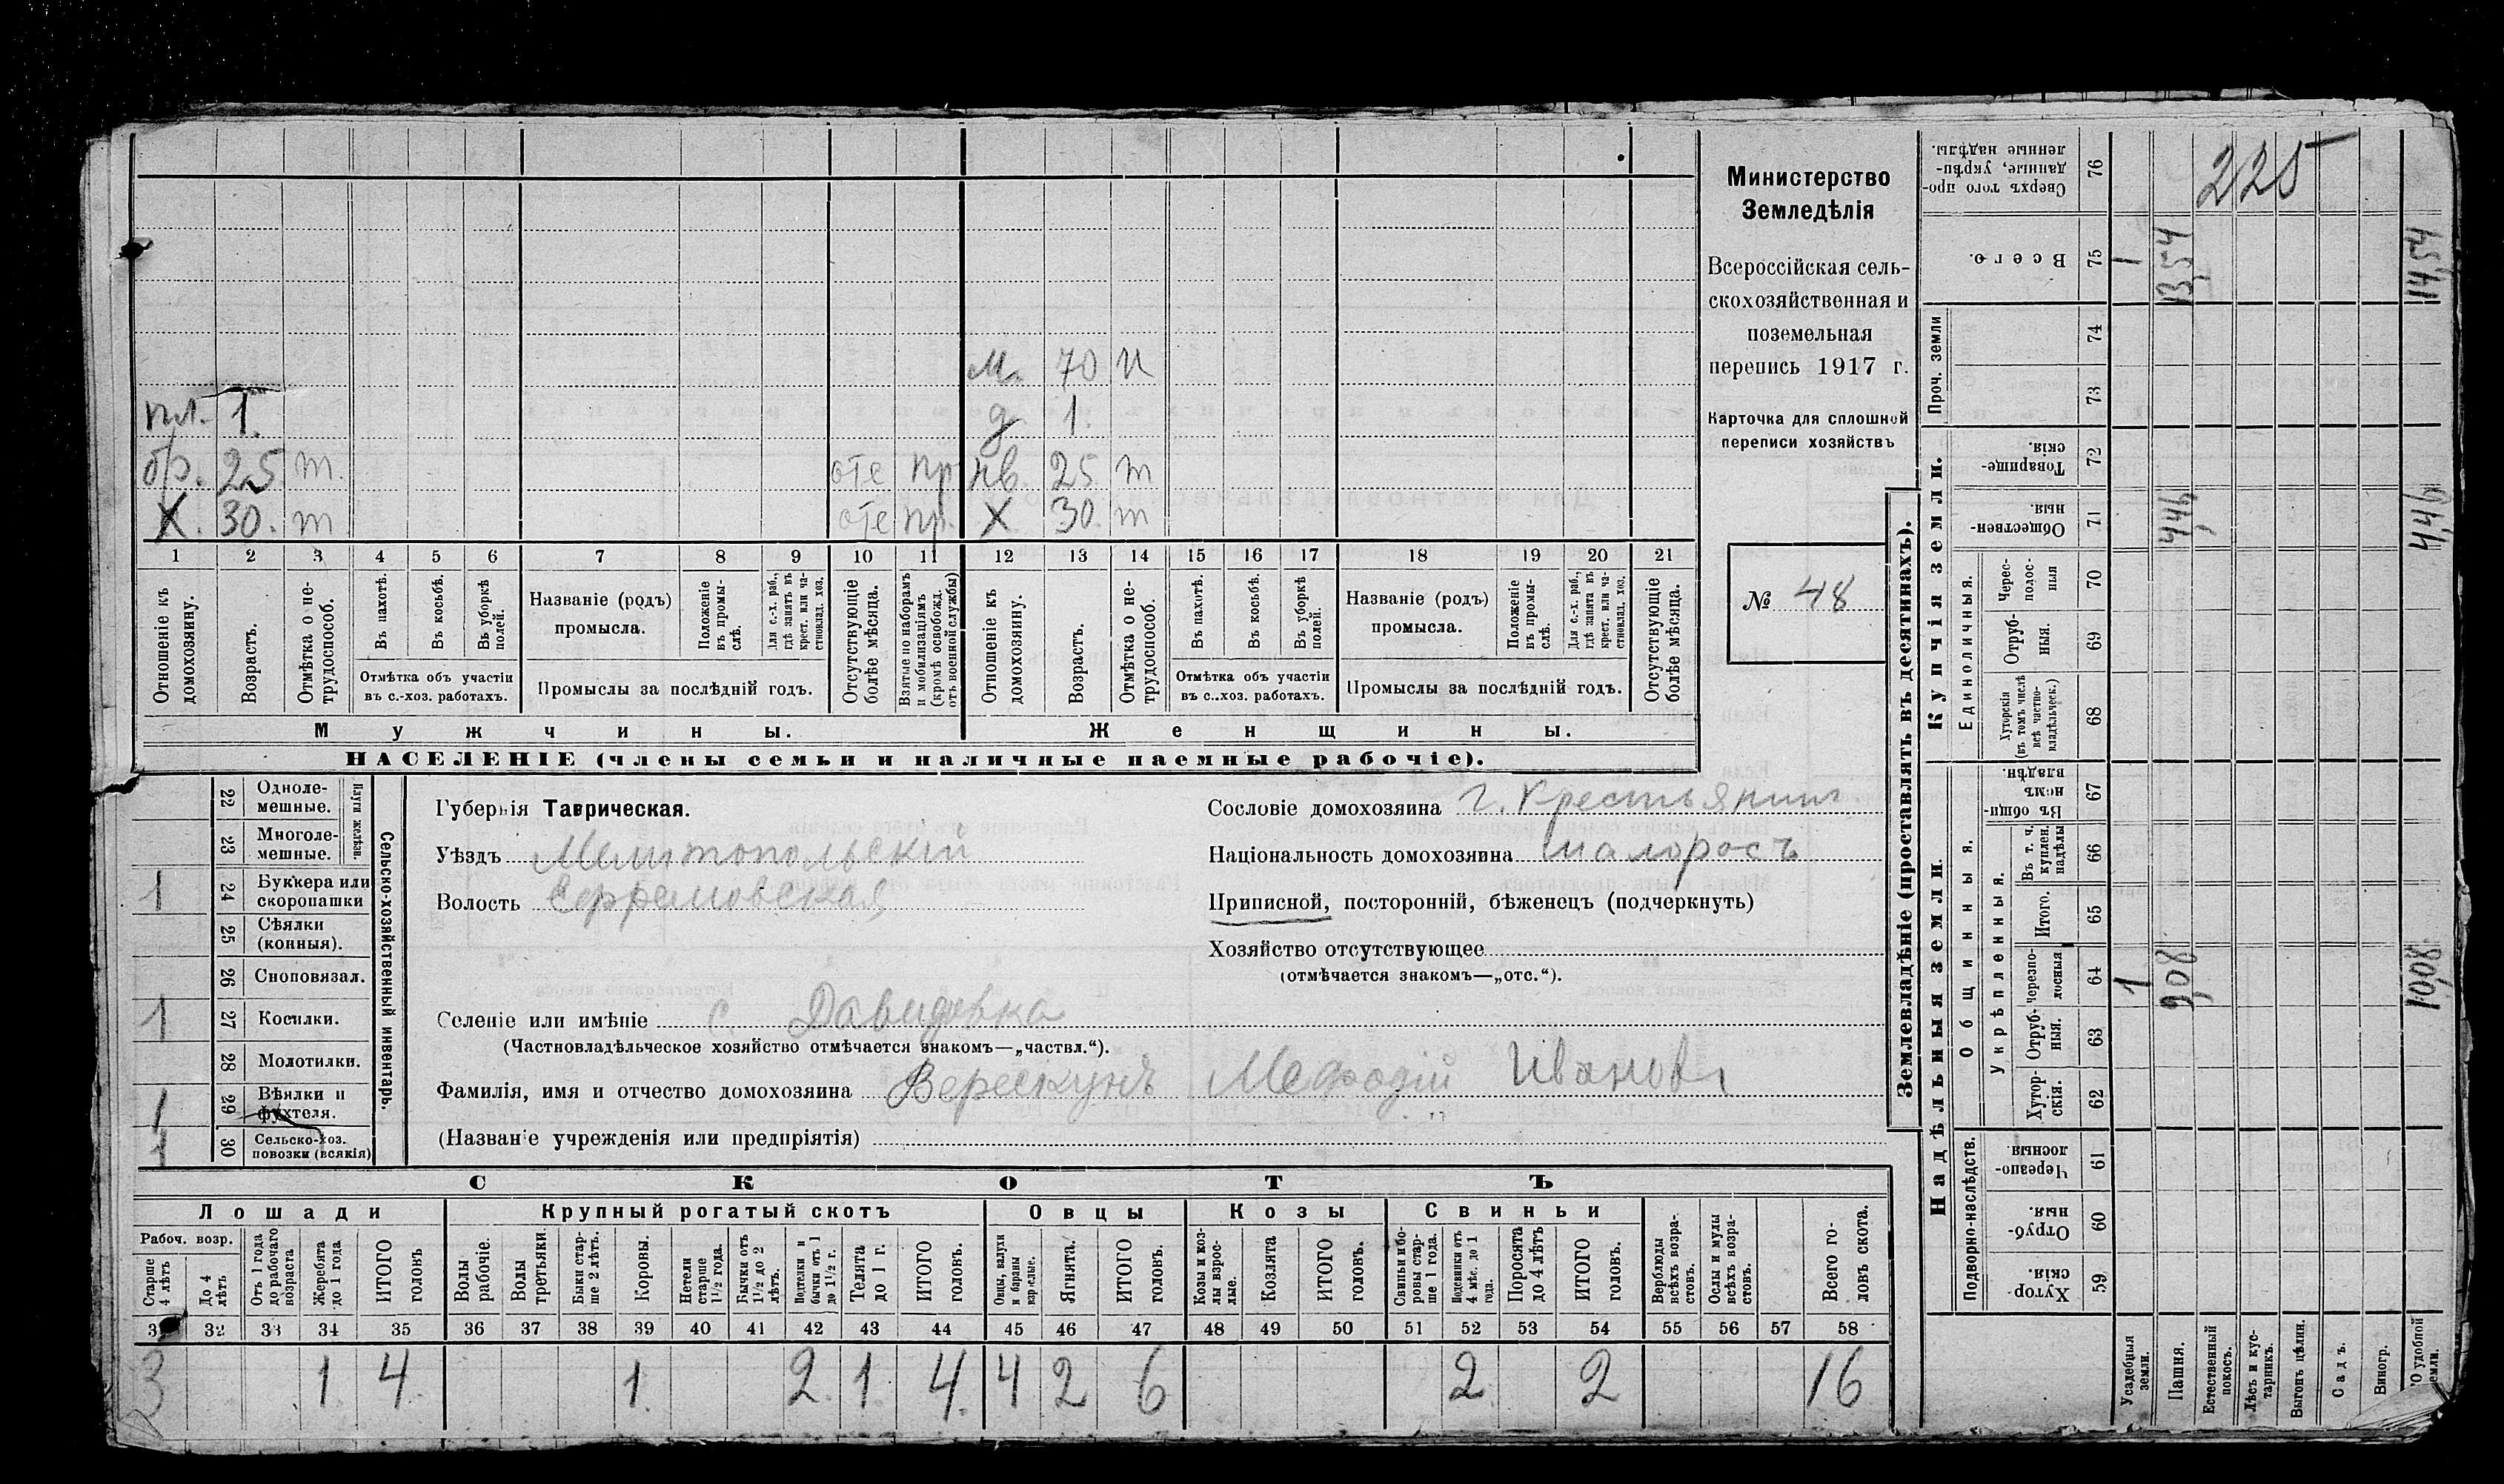 Министерство
Земледѣлія
Всероссійская сель-
скохозяйственная и
поземельная
перепись 1917 г.
Карточка для сплошной
переписи хозяйствъ
№ 48
м. 70 н
пл. 1. д. 1.
бр. 25 т. отс пр нв. 25 т
X. 30. т отс пр. X 30. т
1 2 3 4 5 6 7 8 9 10 11 12 13 14 15 16 17 18 19 20 21
Отношеніе къ домохозяину.
Возрастъ.
Отмѣтка о не-трудоспособ.
Въ пахотѣ.
Въ косьбѣ.
Въ уборкѣ полей.
Отмѣтка объ участіи
въ с.-хоз. работахъ.
Названіе (родъ)
промысла.
Положеніе въ промы-слѣ.
Для с.-х. раб., гдѣ занятъ въ крест. или ча-стновлад. хоз.
Промыслы за послѣдній годъ.
Отсутствующіе болѣе мѣсяца.
Взятые по наборамъ и мобилизаціямъ (кромѣ освобожд. отъ военной службы)
Отношеніе къ домохозяину.
Возрастъ.
Отмѣтка о не-трудоспособ.
Въ пахотѣ.
Въ косьбѣ.
Въ уборкѣ полей.
Отмѣтка объ участіи
въ с..хоз. работахъ.
Названіе (родъ)
промысла.
Положеніе въ промы-слѣ.
Для с.-х. раб., гдѣ занята въ крест. или ча-стновлад. хоз.
Промыслы за послѣдній годъ.
Отсутствующіе болѣе мѣсяца.
Мужчины. Женщины.
НАСЕЛЕНІЕ (члены семьи и наличные наемные рабочіе).
22 Одноле-мешные.
23 Многоле-мешные.
Плуги желѣзн.
1 24 Буккера или скоропашки
25 Сѣялки (конныя).
26 Сноповязал.
1 27 Косилки.
28 Молотилки.
1 29 Вѣялки и фухтеля.
1 30 Сельско-хоз. повозки (всякія)
Сельско-хозяйственный инвентарь.
Губернія Таврическая.
Уѣздъ Мелитопольскій
Волость Ефремовская
Селеніе или имѣніе с. Давидовка
(Частновладѣльческое хозяйство отмѣчается знакомъ—„частвл.“).
Фамилія, имя и отчество домохозяина Верескунъ Мефодій Иванов
(Названіе учрежденія или предпріятія)
Сословіе домохозяина г. Крестьянин.
Національность домохозяина малоросъ
Приписной, посторонній, бѣженецъ (подчеркнуть)
Хозяйство отсутствующее
(отмѣчается знакомъ—„отс.“).
СКОТЪ
Лошади Крупный рогатый скотъ Овцы Козы Свиньи
Рабоч. возр.
Старше 4 лѣтъ
До 4 лѣтъ
Отъ 1 года до рабочаго возраста
Жеребята до 1 года
ИТОГО головъ
Волы рабочіе.
Волы третьяки.
Быки стар-ше 2 лѣтъ.
Коровы.
Нетели старше 1½ года.
Бычки отъ 1½ до 2 лѣтъ.
Подтелки и бычки отъ 1 до 1½ г.
Телята до 1 г.
ИТОГО головъ.
Овцы, валухи и бараны взрослые.
Ягнята.
ИТОГО головъ.
Козы и коз-лы взрос-лые.
Козлята
ИТОГО головъ.
Свиньи и бо-ровы стар-ше 1 года.
Подсвинки отъ 4 мѣс. до 1 года.
Поросята до 4 лѣтъ
ИТОГО головъ.
Верблюды всѣхъ возра-стовъ.
Ослы и мулы всѣхъ возра-стовъ.
Всего го-ловъ скота.
32 33 34 35 36 37 38 39 40 41 42 43 44 45 46 47 48 49 50 51 52 53 54 55 56 57 58
3 1 4. 1. 2. 1. 4. 4 2 6 2 2 16
Землевладѣніе (проставлять въ десятинахъ).
Надѣльныя земли. Купчія земли.
Подворно-наслѣдств.
Общинныя.
Укрѣпленныя.
Единоличныя.
Проч. земли
Хутор-скія. 59
Отруб-ныя. 60
Черезпо-лосныя. 61
Хутор-скія. 62
Отруб-ныя. 63
Черезпо-лосныя 64
Итого. 65
Въ т. ч. куплен. надѣлы 66
Въ общи-номъ владѣн. 67
Хуторскія (въ томъ числѣ всѣ частно-владѣльческ.) 68
Отруб-ныя. 69
Черес-полос-ныя 70
Обществен-ныя. 71
Товарище-скія. 72
73
74
Всего. 75
Сверхъ того про-данные, укрѣп-ленные надѣлы. 76
Усадебныя земли. 1 1
Пашня. 9,08 4,46 13,54
Естественный покосъ.
Лѣсъ и кус-тарникъ.
Выгонъ цѣлин.
Садъ.
Виногр.
удобной земли. 10,08 4,46 14,54
225